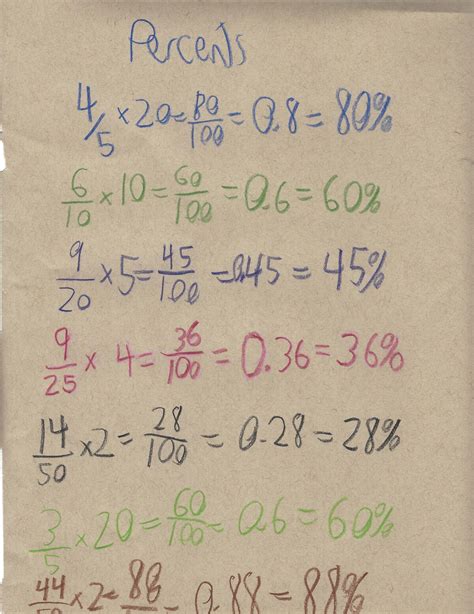 Percents
4/5 × 20 = 80/100 = 0.8 = 80%
6/10 × 10 = 60/100 = 0.6 = 60%
9/20 × 5 = 45/100 = 0.45 = 45%
9/25 × 4 = 36/100 = 0.36 = 36%
14/50 × 2 = 28/100 = 0.28 = 28%
3/5 × 20 = 60/100 = 0.6 = 60%
44 × 2 = 88 = 0.88 = 88%